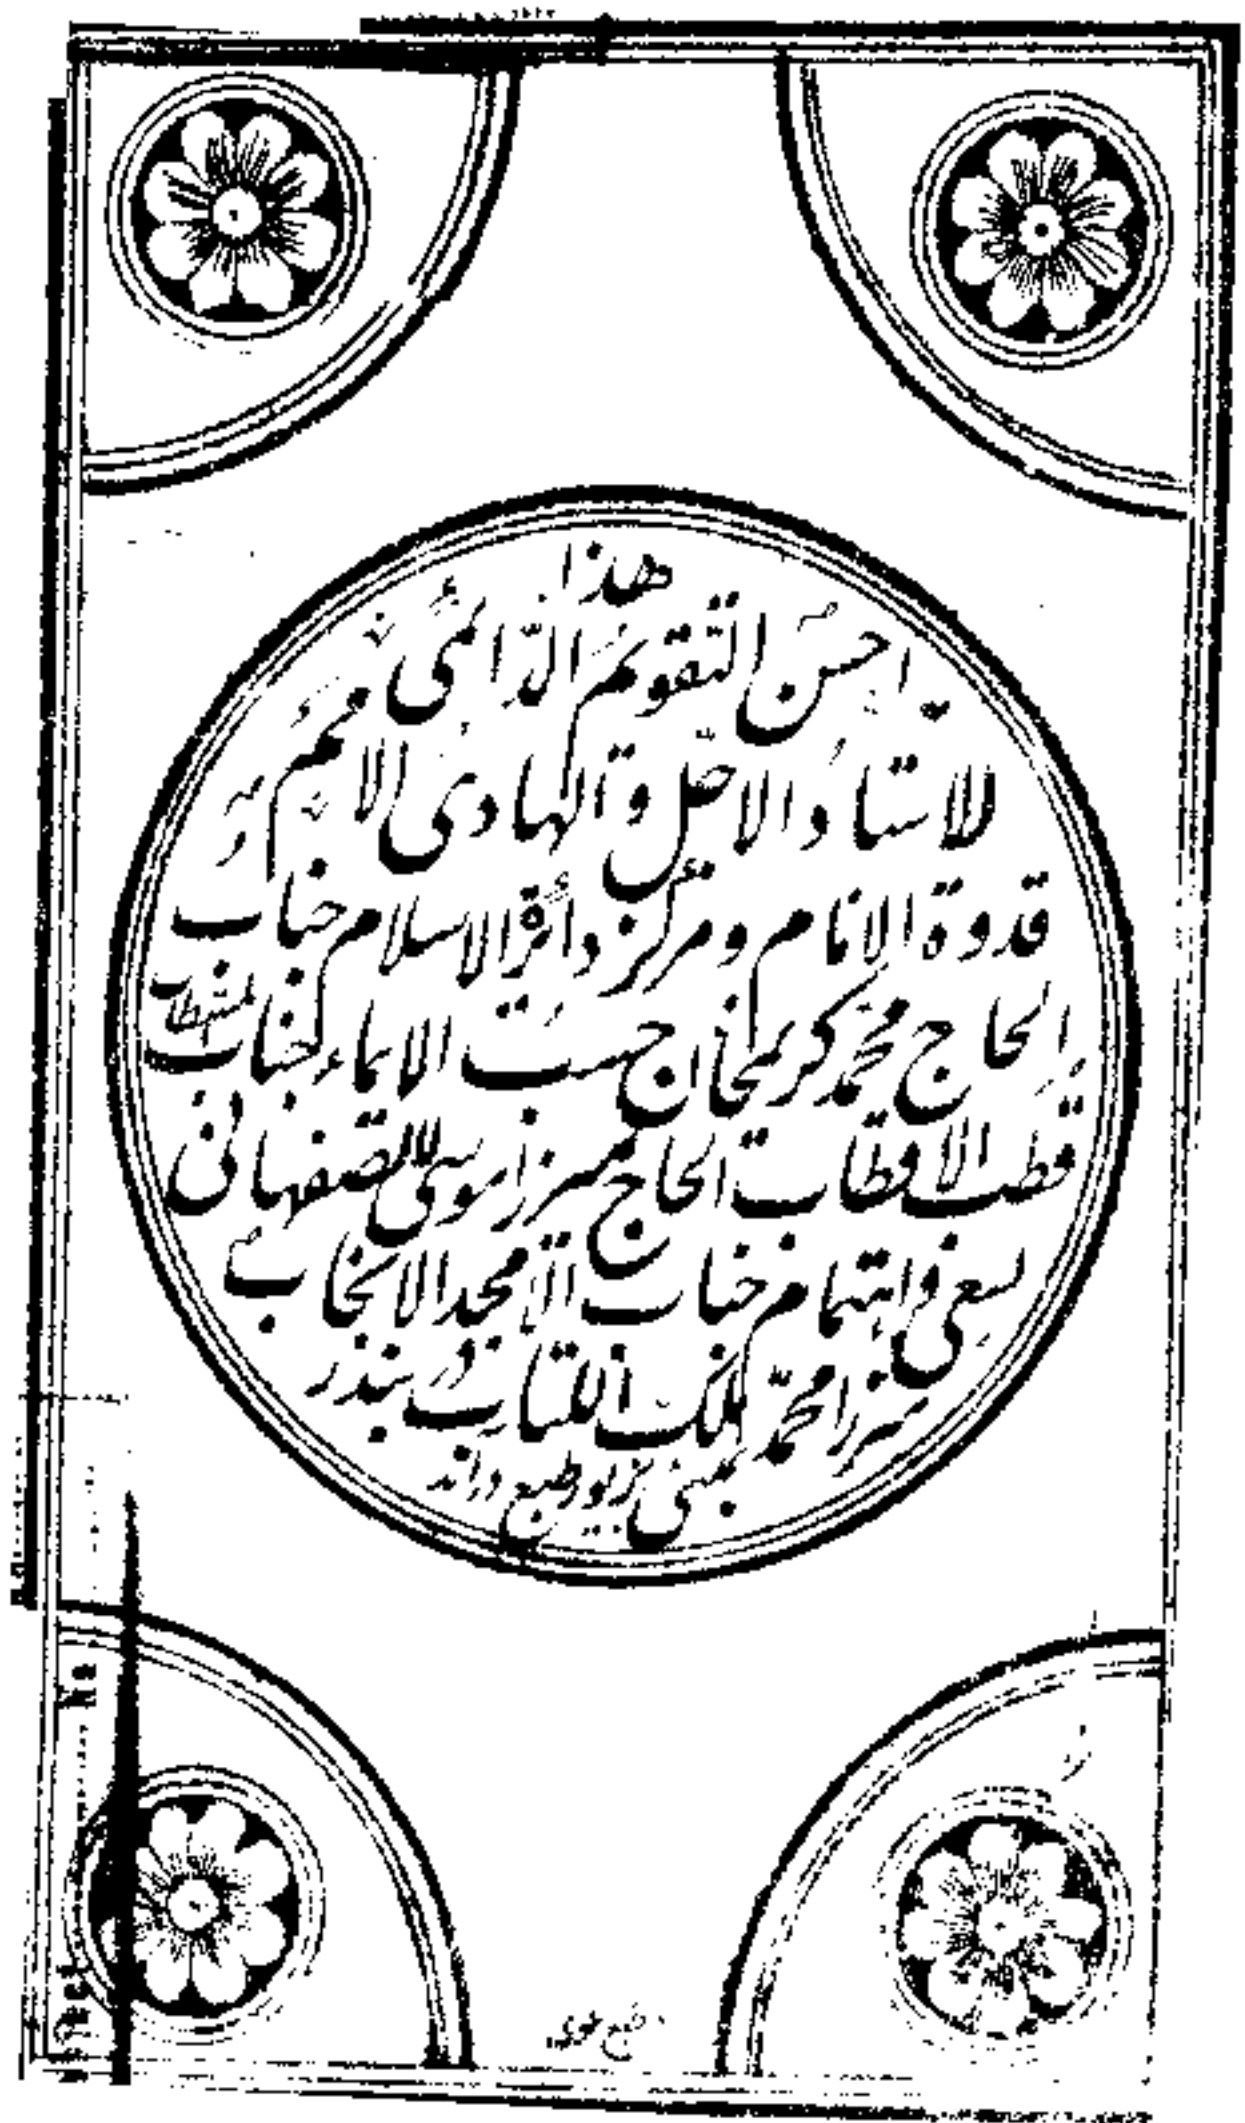 هذا
احسن التقویم الدائمی
للاستاد الاجل و الهادی الافخم
قدوة الانام و مرکز دائرة الاسلام جناب
الحاج محمد کریمخان حسب الایماء جناب مستطاب
قطب الاقطاب الحاج میرزا موسی الاصفهانی
بسعی و اهتمام جناب الامجد الانجاب
میرزا محمد ملک الکتاب در بندر
بمبئی بزیور طبع در آمد